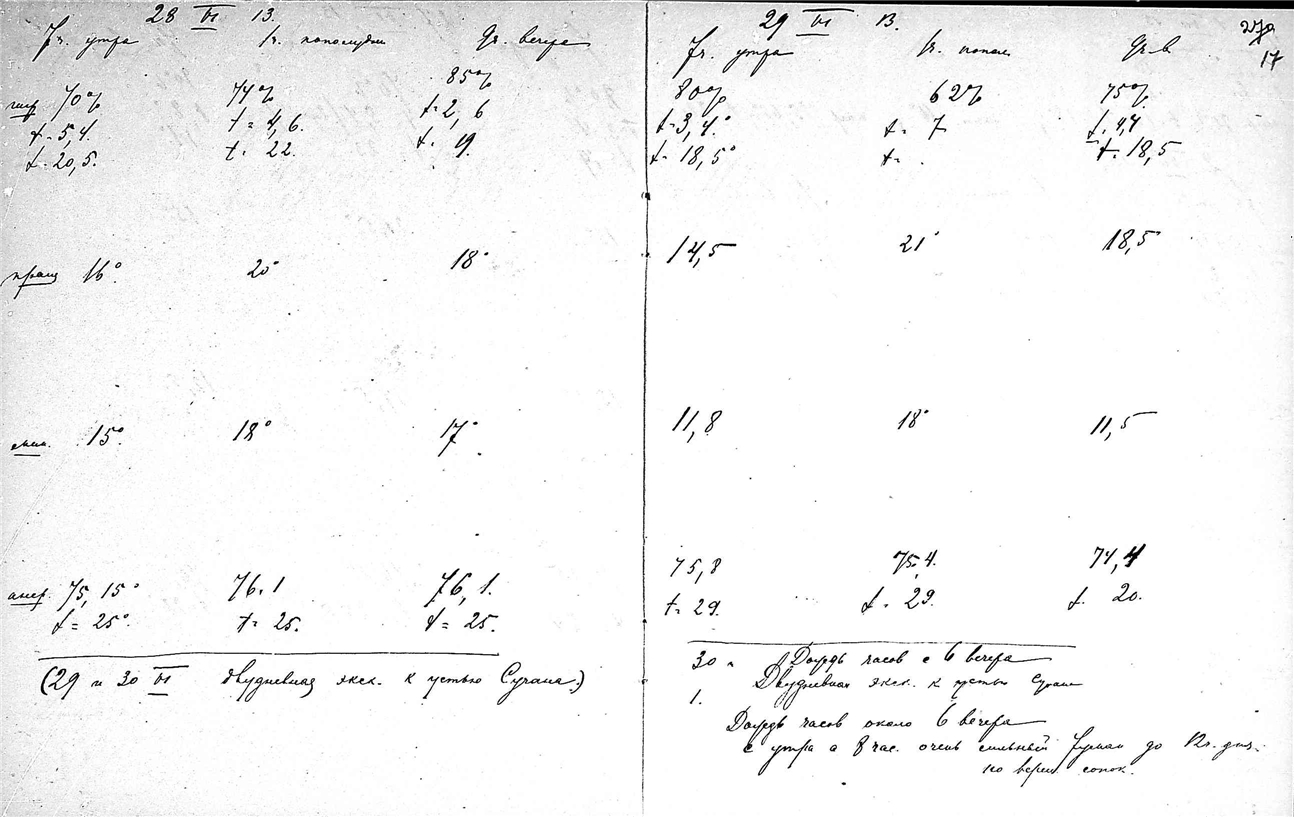 28 VI 13.
7ч. утра 1ч. пополудни 9ч. вечера
гигр 70% 74% 85%
t=5,4. t=4,6. t=2,6
t=20,5. t. 22. t. 19.
пращ 16° 20° 18°
мин. 15° 18° 17°
анер. 75,15° 76.1 76,1.
t=25° t=25. t=25.
(29 и 30 VI двудневная экск. к устью Сучана.)
29 VI 13.
17
7ч. утра 1ч. попол 9ч. в
80% 62% 75%
t=3,4° t=7 t. 4,4
t=18,5° t= . t. 18,5
14,5 21° 18,5°
11,8 18° 11,5
75,8 75,4. 74,4
t=29. t. 29. t. 20.
30 и Дождь часов с 6 вечера
Двудневная экск. к устью Сучан
1.
Дождь часов около 6 вечера
с утра в 8 час. очень сильный туман до 12ч. дня.
по верш. сопок.